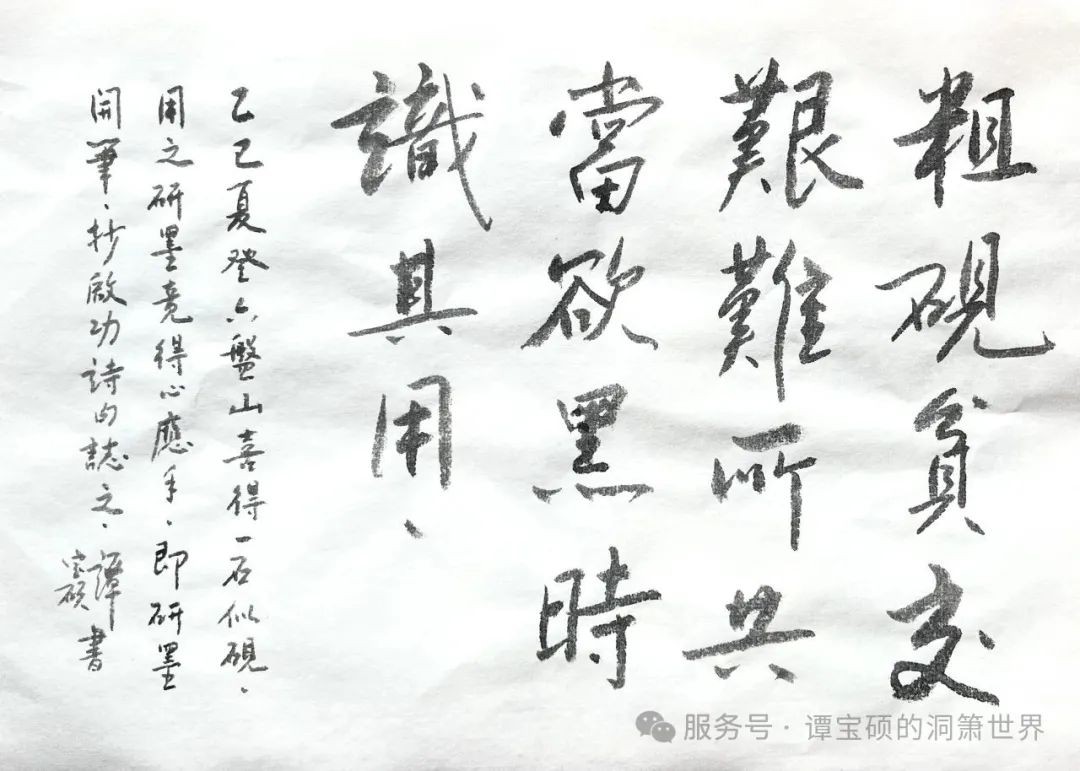 粗硯貧交
艱難所共
當欲黑時
識其用、
乙巳夏登六盤山喜得一石似硯、
用之研墨竟得心應手、即研墨
開筆、抄啟功詩句誌之、譚寶碩書
服务号 · 谭宝硕的洞箫世界